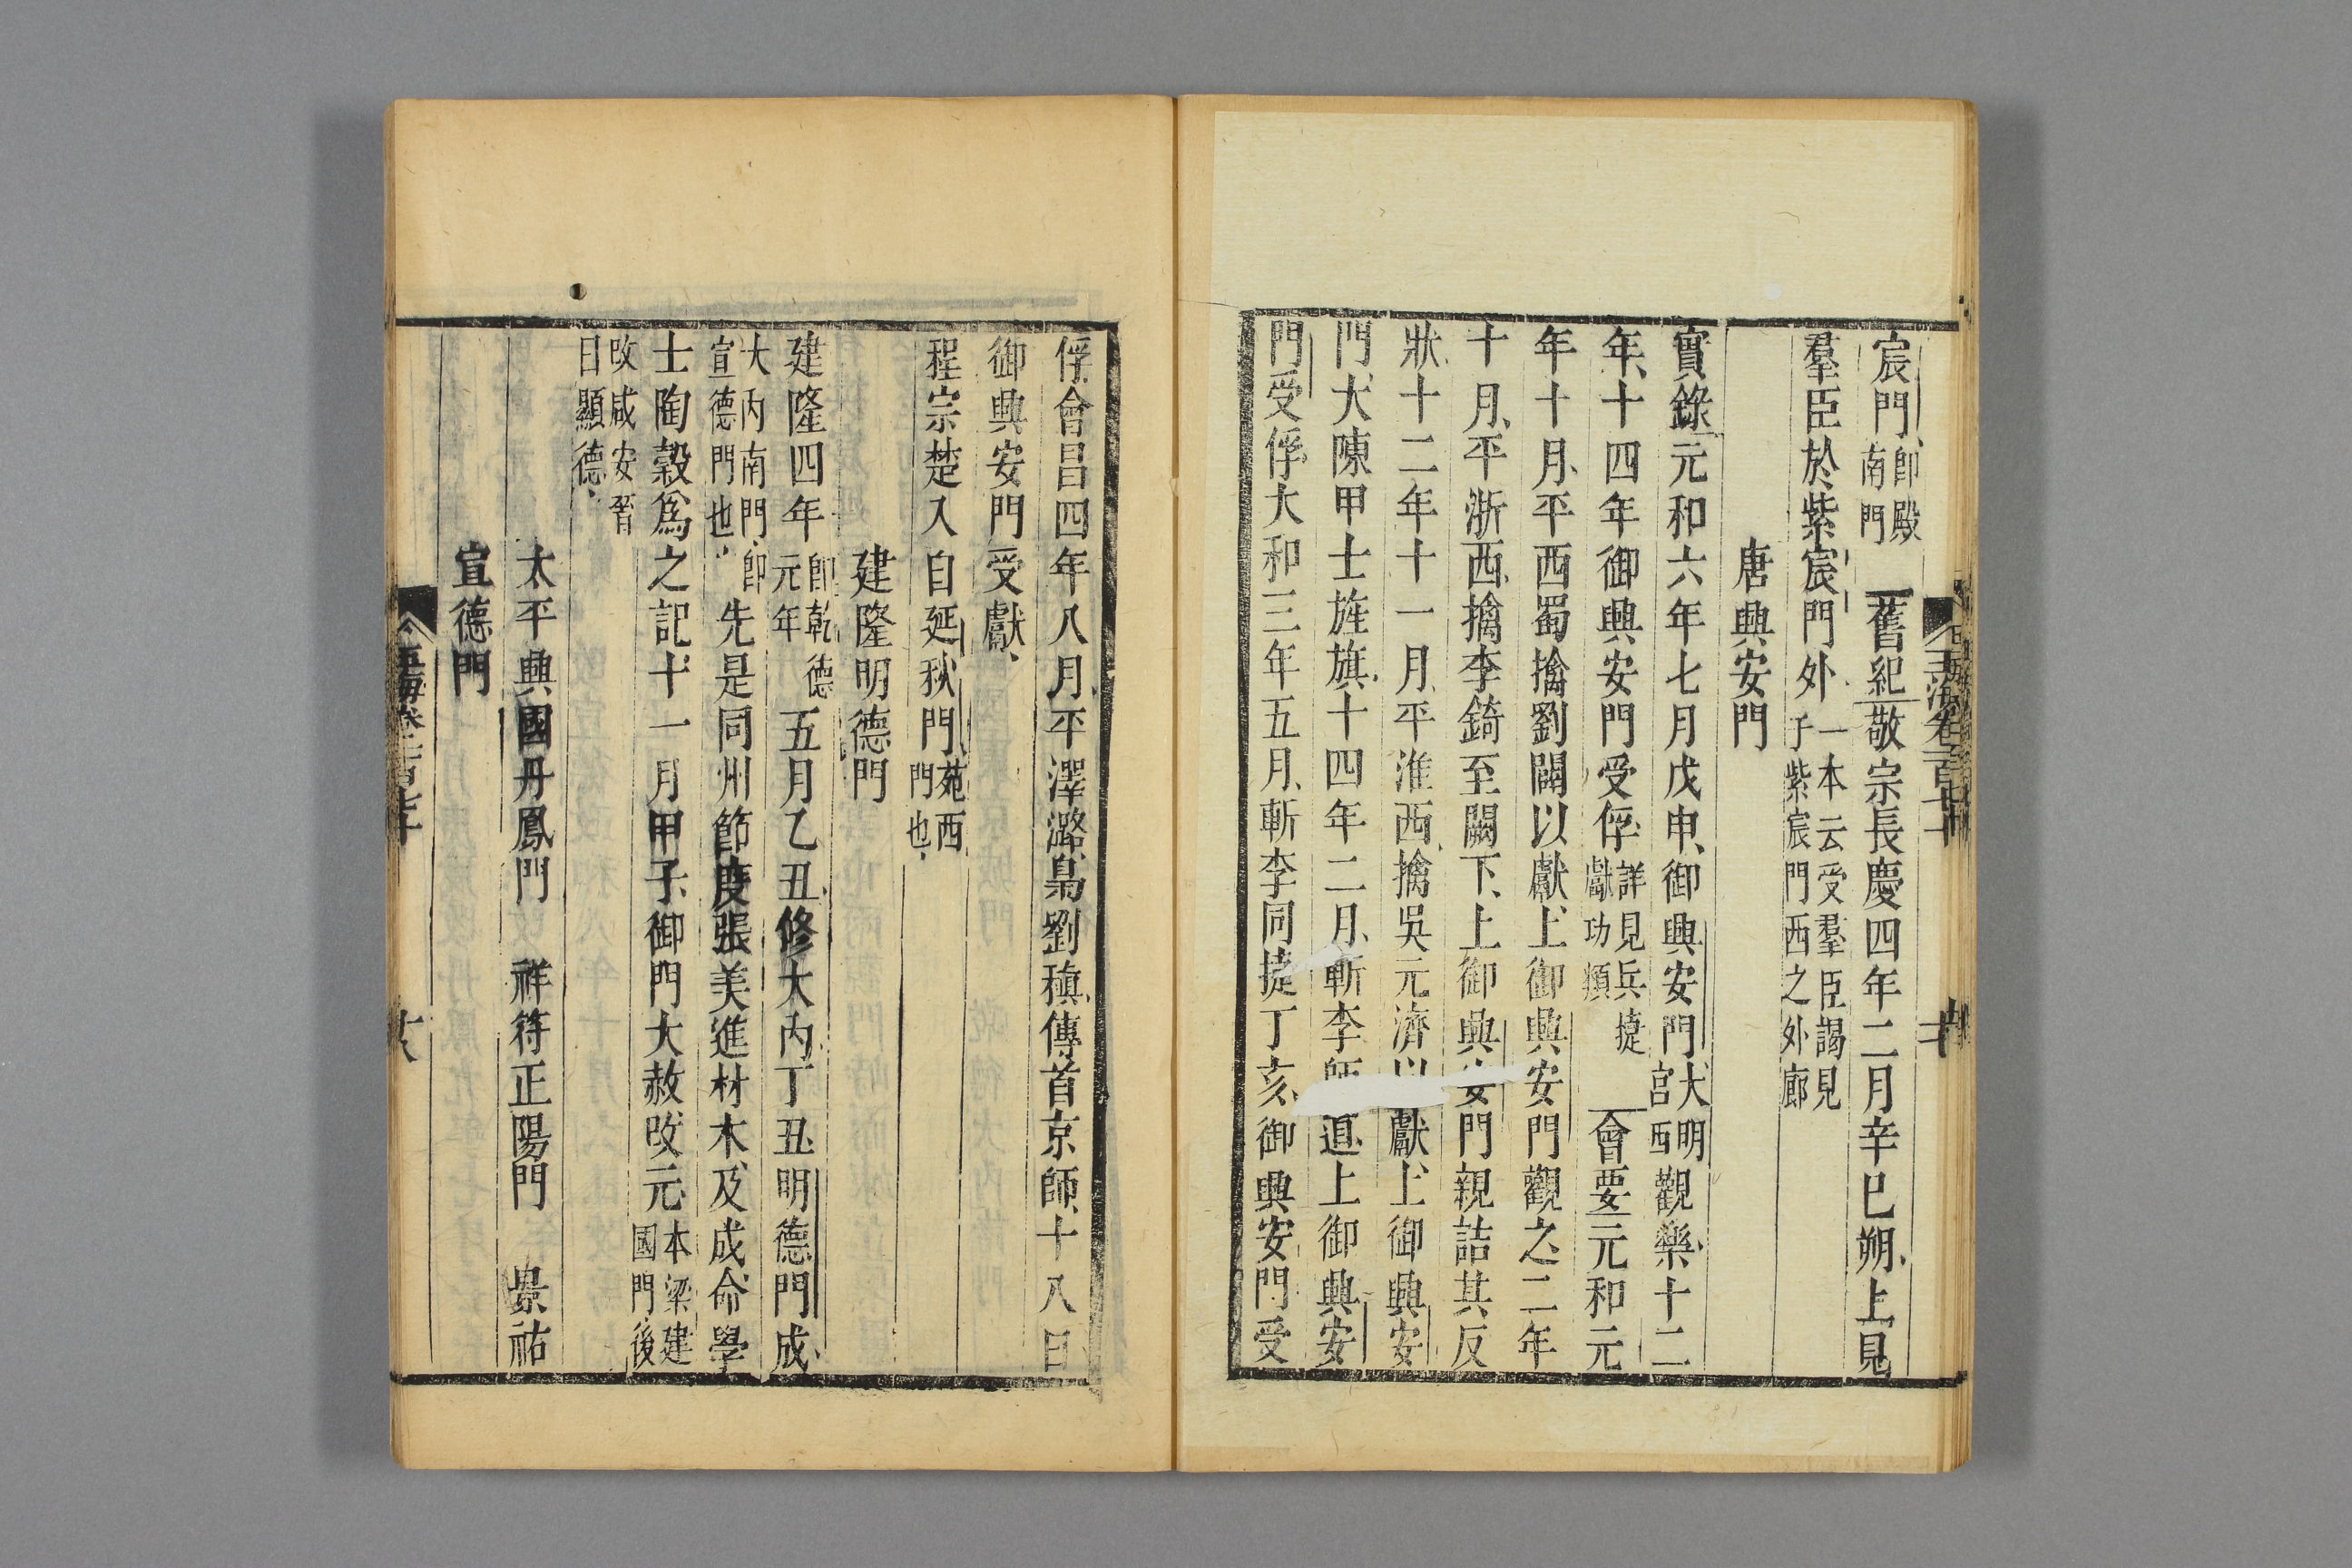 宸門即殿南門　舊紀敬宗長慶四年二月辛巳朔上見
羣臣於紫宸門外一本云受羣臣謁見于紫宸門西之外廊
唐興安門
實錄元和六年七月戊申御興安門大明宮西觀樂十二
年十四年御興安門受俘詳見兵捷獻功類　會要元和元
年十月平西蜀擒劉闢以獻上御興安門觀之二年
十月平浙西擒李錡至闕下上御興安門親詰其反
狀十二年十一月平淮西擒吳元濟以獻上御興安
門大陳甲士旌旗十四年二月斬李師道上御興安
門受俘大和三年五月斬李同捷丁亥御興安門受
俘會昌四年八月平澤潞梟劉稹傳首京師十八日
御興安門受獻
程宗楚入自延秋門苑西門也
建隆明德門
建隆四年即乾德元年五月乙丑修大內丁丑明德門成
大內南門即宣德門也先是同州節度張美進材木及成命學
士陶穀爲之記十一月甲子御門大赦改元本梁建國門後
改咸安晉曰顯德
太平興國丹鳳門　祥符正陽門　景祐
宣德門
玉海卷一百七十
十八